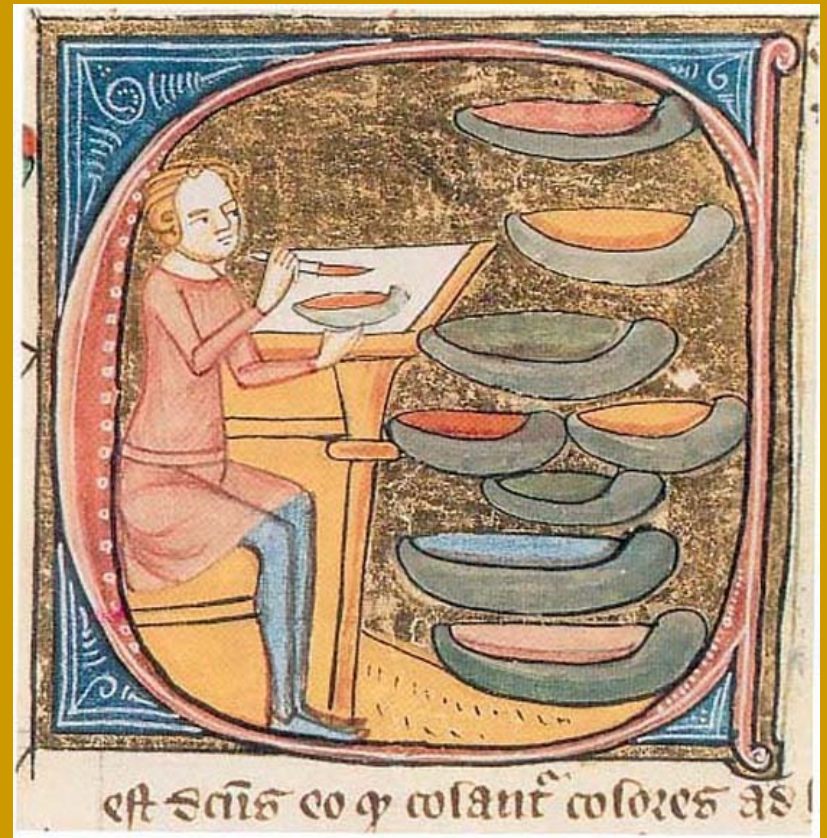 est dcūs eo ꝙ colant᷑ colores ad